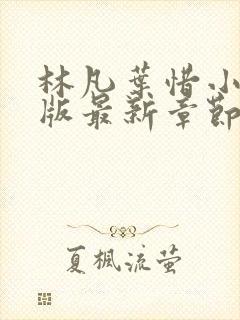 林凡葉惜小
版最新章節
夏楓流萤